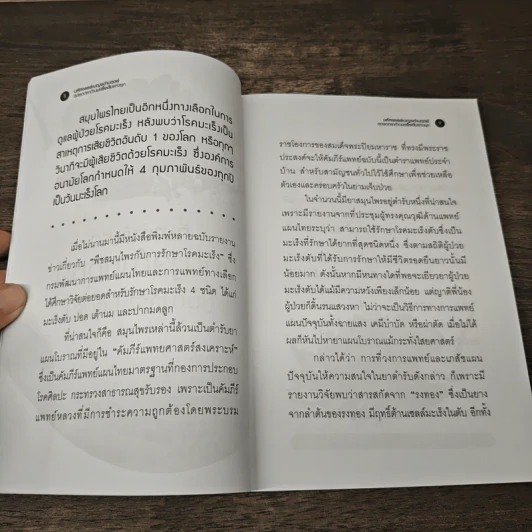 สมุนไพรไทยเป็นอีกหนึ่งทางเลือกในการ
ดูแลผู้ป่วยโรคมะเร็ง หลังพบว่าโรคมะเร็งเป็น
สาเหตุการเสียชีวิตอันดับ 1 ของโลก หรือทุกๆ
วินาทีจะมีผู้เสียชีวิตด้วยโรคมะเร็ง ซึ่งองค์การ
อนามัยโลกกำหนดให้ 4 กุมภาพันธ์ของทุกปี
เป็นวันมะเร็งโลก
เมื่อไม่นานมานี้มีหนังสือพิมพ์หลายฉบับรายงาน
ข่าวเกี่ยวกับ “พืชสมุนไพรกับการรักษาโรคมะเร็ง” ซึ่ง
กรมพัฒนาการแพทย์แผนไทยและการแพทย์ทางเลือก
ได้ศึกษาวิจัยต่อยอดสำหรับรักษาโรคมะเร็ง 4 ชนิด ได้แก่
มะเร็งตับ ปอด เต้านม และปากมดลูก
ที่น่าสนใจก็คือ สมุนไพรเหล่านี้ล้วนเป็นตำรับยา
แผนโบราณที่มีอยู่ใน “คัมภีร์แพทยศาสตร์สงเคราะห์”
ซึ่งเป็นคัมภีร์แพทย์แผนไทยมาตรฐานที่กองการประกอบ
โรคศิลปะ กระทรวงสาธารณสุขรับรอง เพราะเป็นคัมภีร์
แพทย์หลวงที่มีการชำระความถูกต้องโดยพระบรม
ราชโองการของสมเด็จพระปิยมหาราช ที่ทรงมีพระราช
ประสงค์จะให้คัมภีร์แพทย์ฉบับนี้เป็นตำราแพทย์ประจำ
บ้าน สำหรับสามัญชนทั่วไปไว้ใช้ศึกษาเพื่อช่วยเหลือ
ตัวเองและครอบครัวในยามเจ็บป่วย
ในจำนวนนี้มียาสมุนไพรอยู่ตำรับหนึ่งที่น่าสนใจ
เพราะมีรายงานจากที่ประชุมผู้ทรงคุณวุฒิด้านแพทย์
แผนไทยระบุว่า สามารถใช้รักษาโรคมะเร็งตับซึ่งเป็น
มะเร็งที่รักษาได้ยากที่สุดชนิดหนึ่ง ซึ่งตามสถิติผู้ป่วย
มะเร็งตับที่ได้รับการรักษาให้มีชีวิตรอดยืนยาวนั้นมี
น้อยมาก ดังนั้นหากมีหนทางใดที่พอจะเยียวยาผู้ป่วย
มะเร็งตับได้แม้มีความหวังเพียงเล็กน้อย แต่ญาติพี่น้อง
ผู้ป่วยก็ดิ้นรนแสวงหา ไม่ว่าจะเป็นวิธีการทางการแพทย์
แผนปัจจุบันทั้งฉายแสง เคมีบำบัด หรือผ่าตัด เมื่อไม่ได้
ผลก็หันไปหายาแผนโบราณแม้กระทั่งไสยศาสตร์
กล่าวได้ว่า การที่วงการแพทย์และเภสัชแผน
ปัจจุบันให้ความสนใจในยาตำรับดังกล่าว ก็เพราะมี
รายงานวิจัยพบว่าสารสกัดจาก “รงทอง” ซึ่งเป็นยาง
จากลำต้นของรงทอง มีฤทธิ์ต้านเซลล์มะเร็งในตับ อีกทั้ง